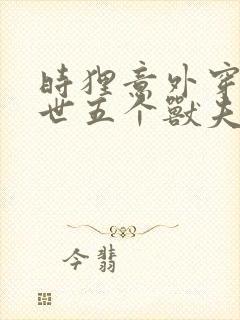 時狸意外穿
世五个獸夫
今翡